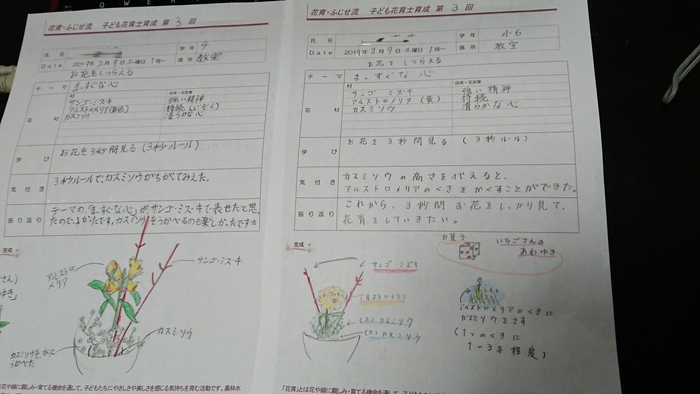 花育・ふじせ流 子ども花育士育成 第 3 回
氏名
学年 4
Date 2019年2月9日土曜日 1時~
場所 教室
お花をしつらえる
テーマ まっすぐな心
花材
サンゴ・ミズキ 強い精神
アルストロメリア(黄色) 持続
カスミソウ 清らかな心
学び お花を3秒間見る(3秒ルール)
気付き 3秒ルールで、カスミソウがちがってみえた。
振り返り テーマの「まっすぐな心」が、サンゴ・ミズキで表せたと思
ったのでよかったです。カスミソウをうかべるのも楽しかったです
完成
アルストロメリア
サンゴ・ミズキ
カスミソウ
カスミソウを水にうかべた
花育・ふじせ流 子ども花育士育成 第 3 回
氏名
学年 小6
Date 2019年2月9日土曜日 1時~
場所 教室
お花をしつらえる
テーマ まっすぐな心
花材
サンゴ・ミズキ 強い精神
アルストロメリア(黄) 持続
カスミソウ 清らかな心
学び お花を3秒間見る(3秒ルール)
気付き カスミソウの高さを代えると、
アルストロメリアのくきをかくすことができた。
振り返り これから、3秒間お花をしっかり見て、
花育をしていきたい。
完成
お菓子
いちごさんの
あわゆき
サンゴ・ミズキ
アルストロメリア
カスミソウ
カスミソウ
アルストロメリアのくきに
カスミソウをさす
(1つのくきに
1~3本程度)